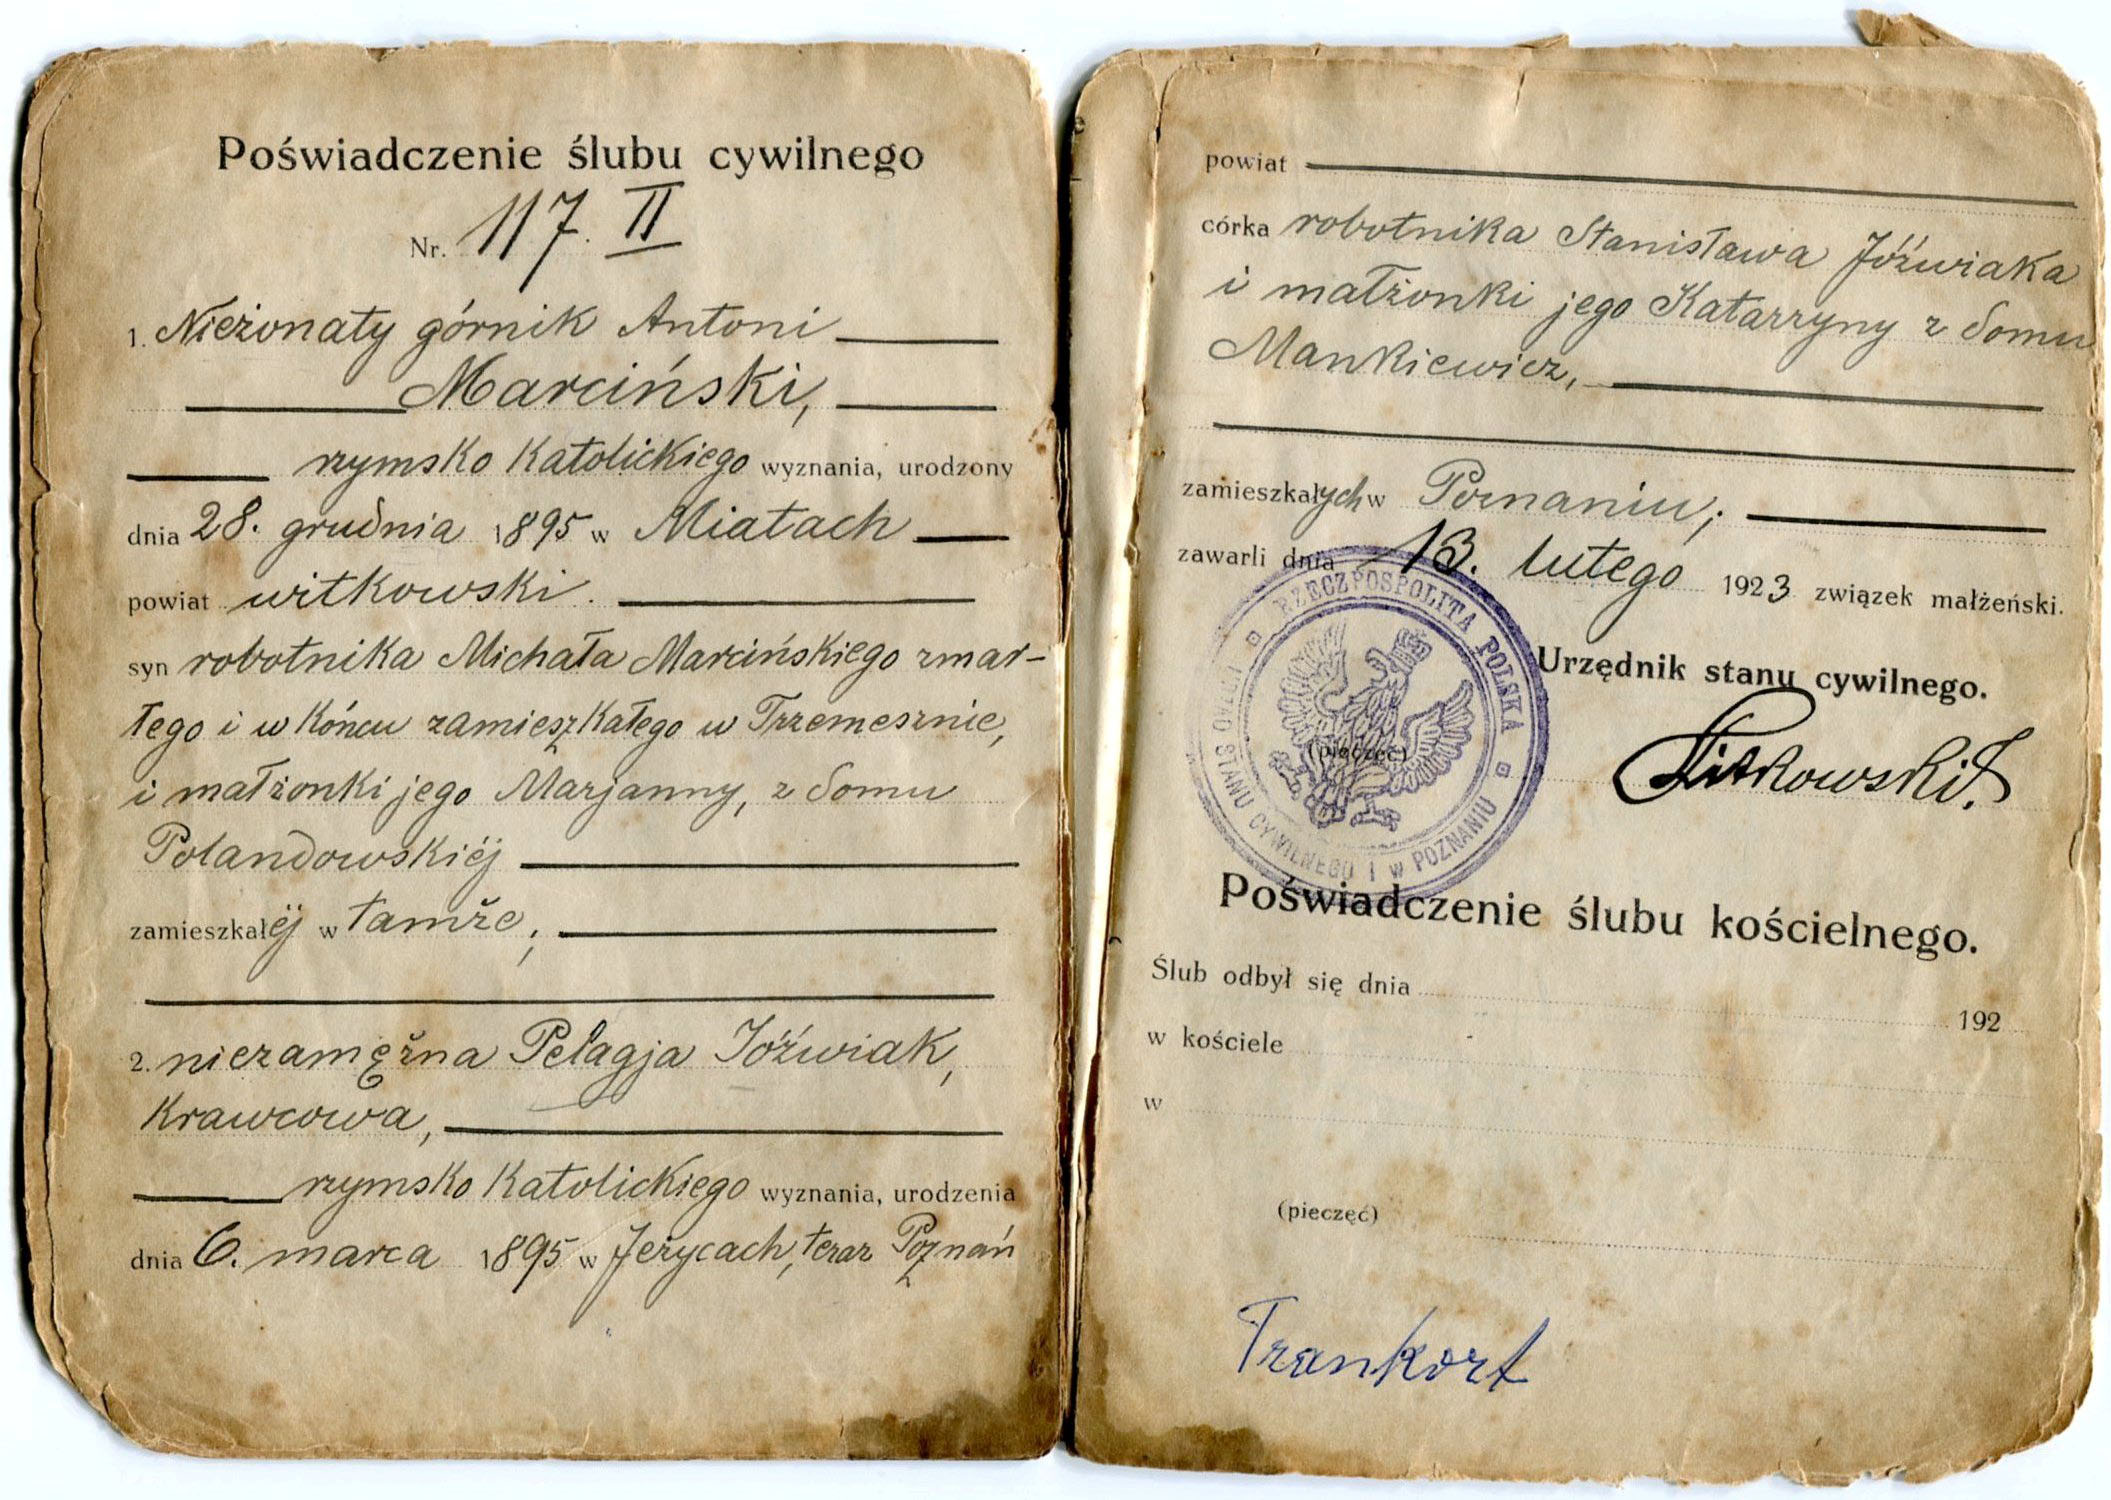 Poświadczenie ślubu cywilnego
Nr. 117. II
1. Nieżonaty górnik Antoni
Marciński,
rzymsko katolickiego wyznania, urodzony
dnia 28. grudnia 1895 w Miatach
powiat witkowski.
syn robotnika Michała Marcińskiego zmar-
łego i w końcu zamieszkałego w Trzemesznie,
i małżonki jego Marjanny, z domu
Polandowskiéj
zamieszkałéj w tamże;
2. niezamężna Pelagja Jóźwiak,
krawcowa,
rzymsko katolickiego wyznania, urodzenia
dnia 6. marca 1895 w Jeżycach, teraz Poznań
powiat
córka robotnika Stanisława Jóźwiaka
i małżonki jego Katarzyny z domu
Mankiewicz,
zamieszkałych w Poznaniu;
zawarli dnia 13. lutego 1923 związek małżeński.
RZECZPOSPOLITA POLSKA
STANU CYWILNEGO I W POZNANIU
Urzędnik stanu cywilnego.
(pieczęć)
Poświadczenie ślubu kościelnego.
Ślub odbył się dnia 192
w kościele
w
(pieczęć)